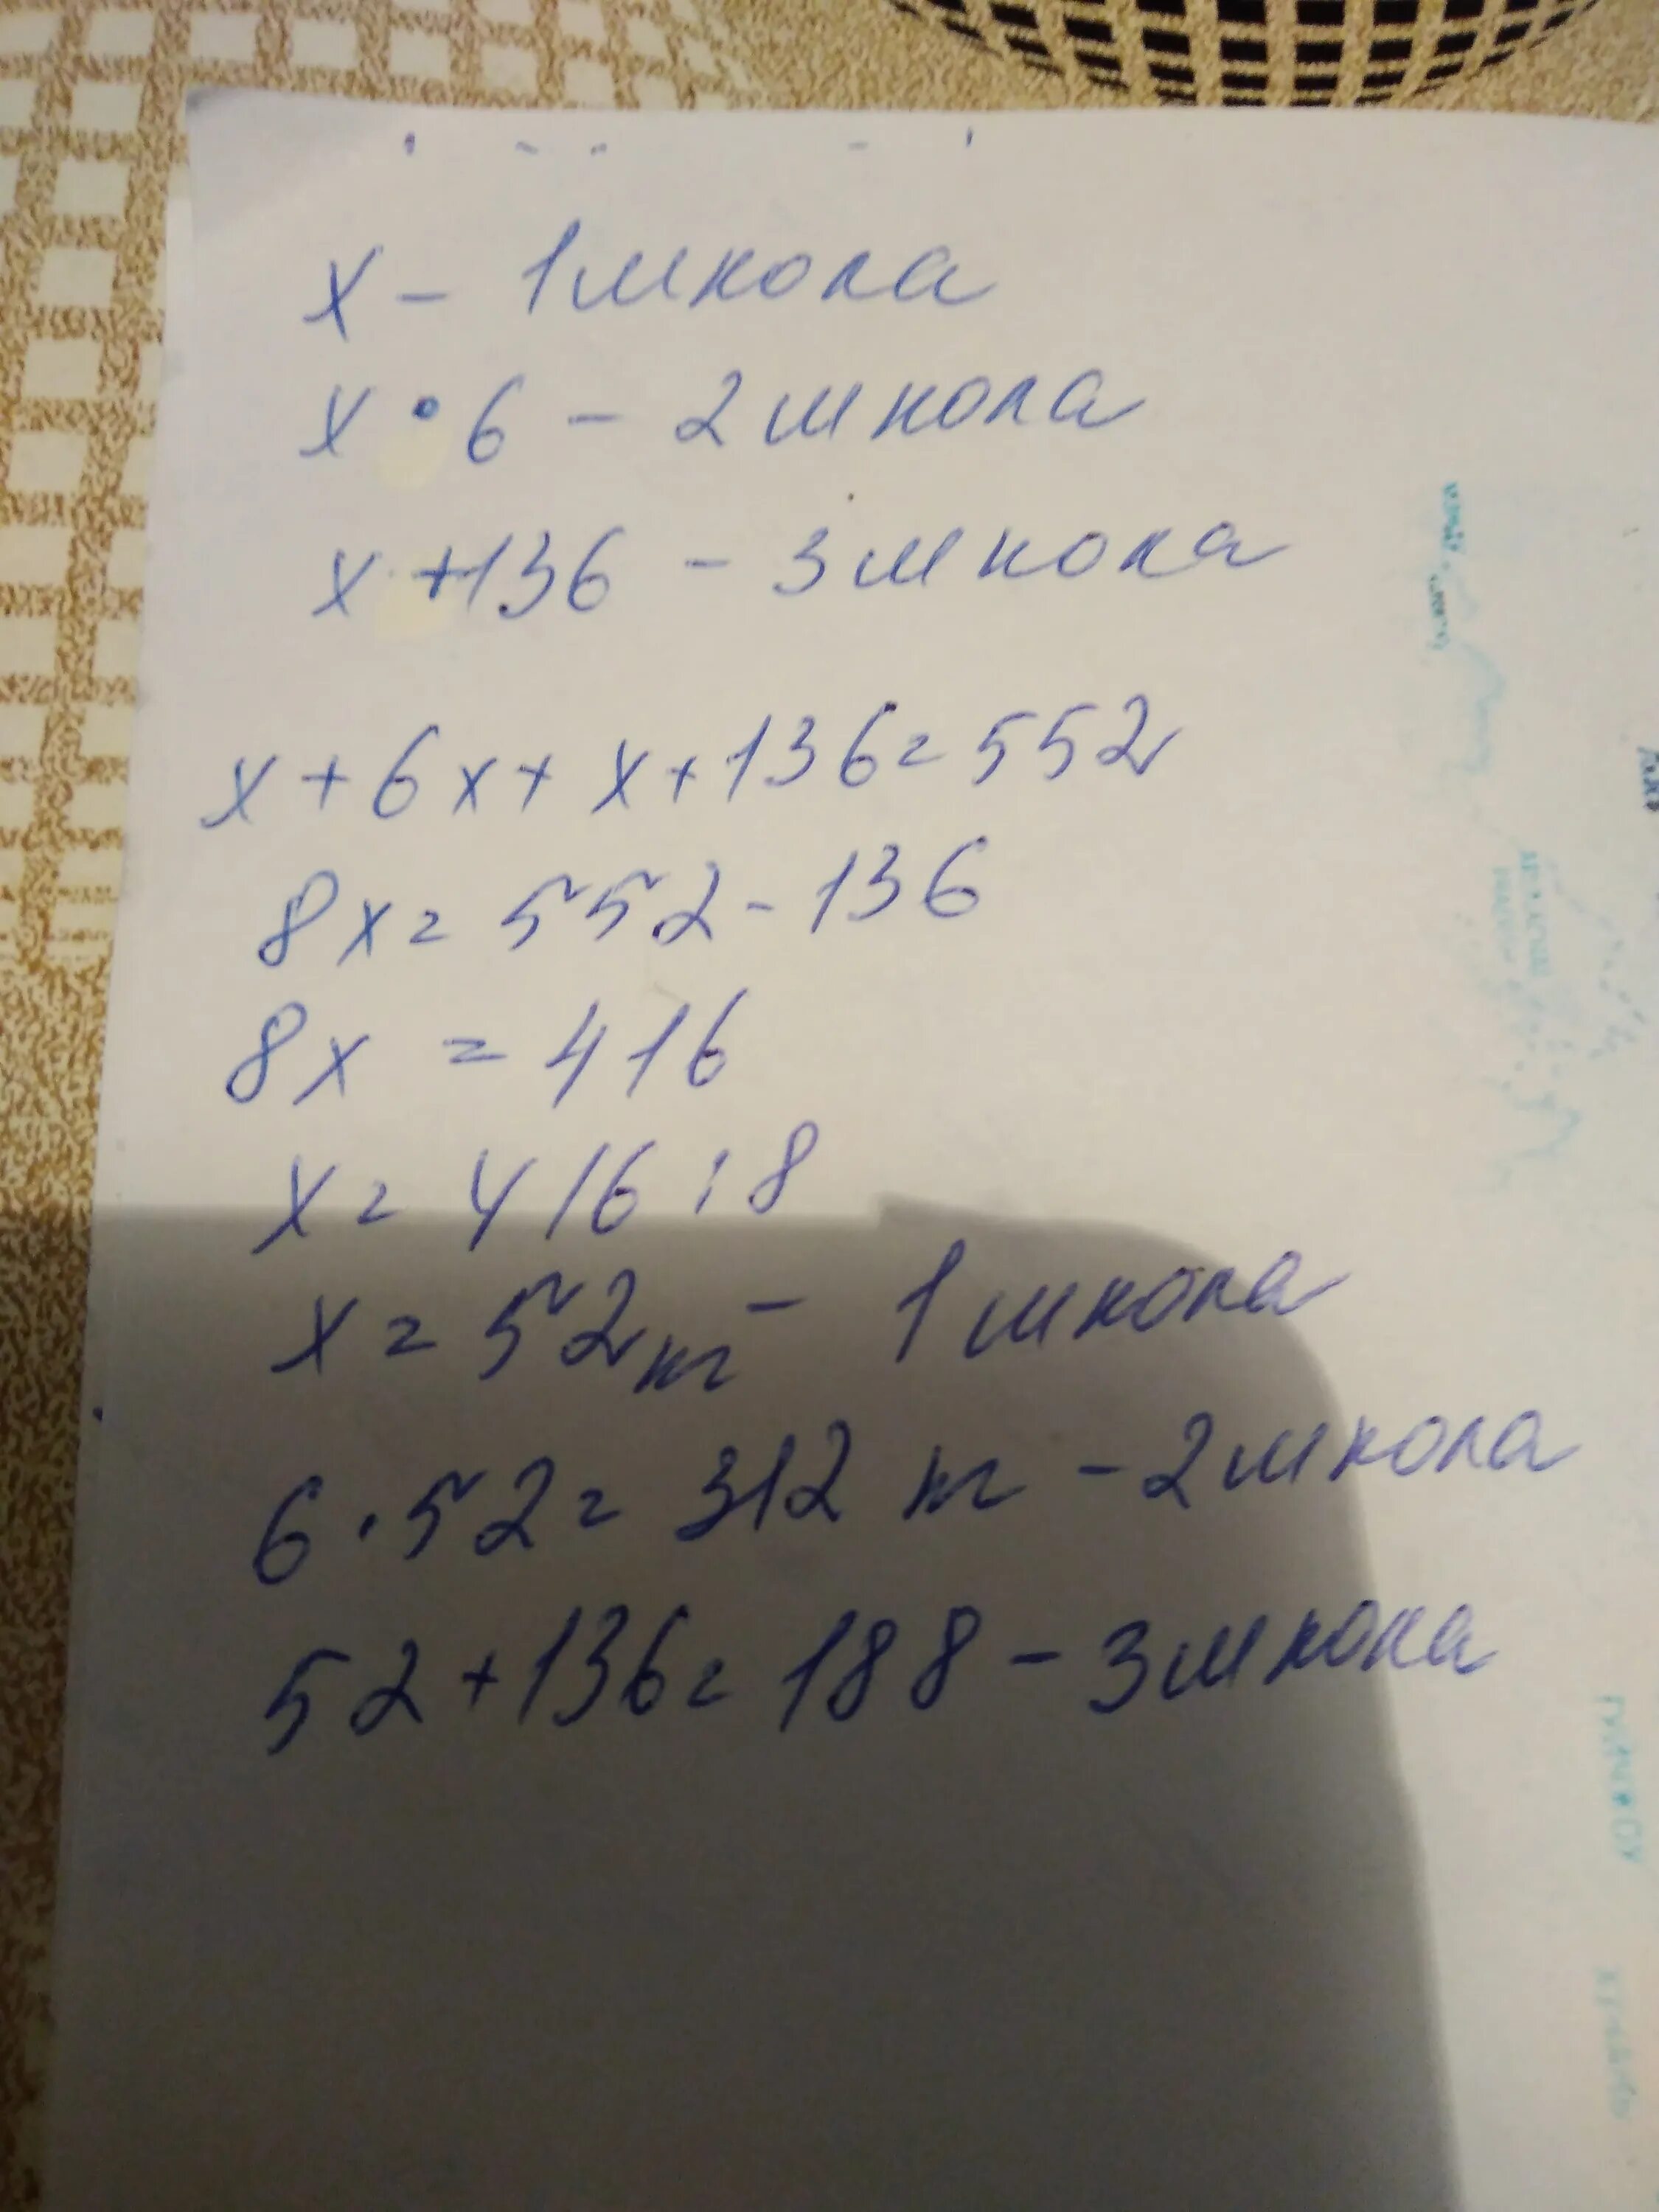 x - 1 школа
x • 6 - 2 школа
x + 136 - 3 школа
x + 6x + x + 136 = 552
8x = 552 - 136
8x = 416
x = 416 : 8
x = 52 кг - 1 школа
6 · 52 = 312 кг - 2 школа
52 + 136 = 188 - 3 школа